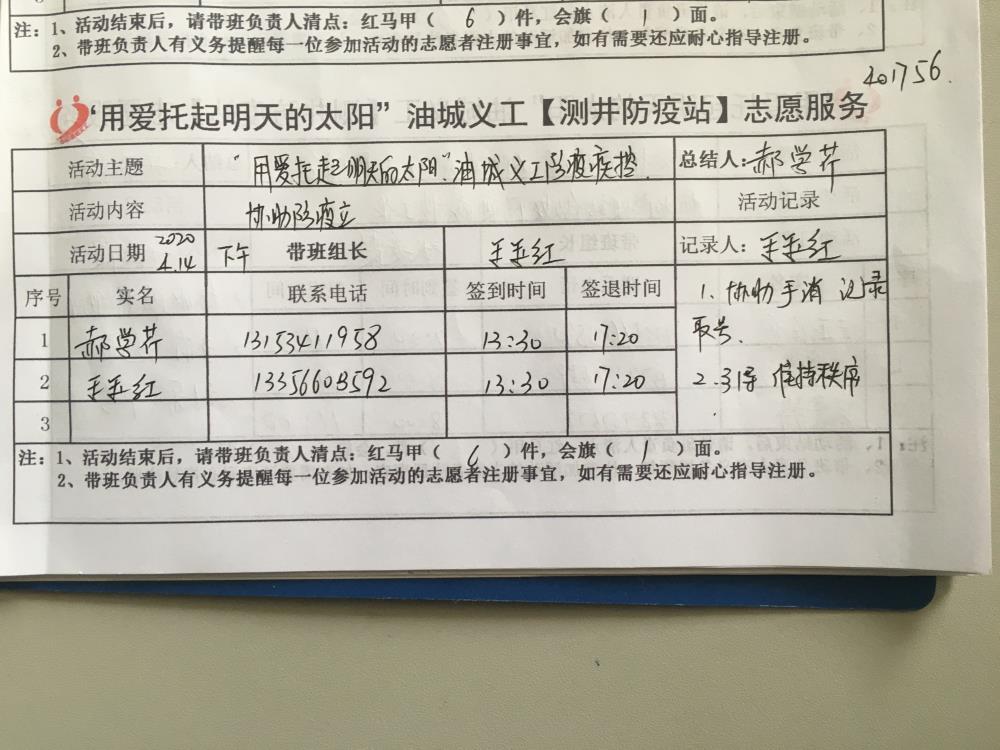 注：1、活动结束后，请带班负责人清点：红马甲（ 6 ）件，会旗（ 1 ）面。
2、带班负责人有义务提醒每一位参加活动的志愿者注册事宜，如有需要还应耐心指导注册。
401756.
“用爱托起明天的太阳” 油城义工【测井防疫站】志愿服务
活动主题 “用爱托起明天的太阳”油城义工防疫疾控. 总结人：郝学芹
活动内容 协助防疫立 活动记录
活动日期 2020 4.14 下午 带班组长 王玉红 记录人：王玉红
序号 实名 联系电话 签到时间 签退时间 1. 协助手消 记录
取号.
1 郝学芹 13153411958 13:30 17:20
2 王玉红 13356603592 13:30 17:20 2. 引导 维持秩序
3
注：1、活动结束后，请带班负责人清点：红马甲（ 6 ）件，会旗（ 1 ）面。
2、带班负责人有义务提醒每一位参加活动的志愿者注册事宜，如有需要还应耐心指导注册。